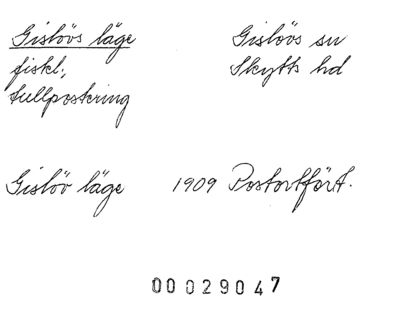 Gislövs läge
fiskl.,
tullpostering
Gislövs sn
Skytts hd
Gislöv läge 1909 Postortfört.
00029047